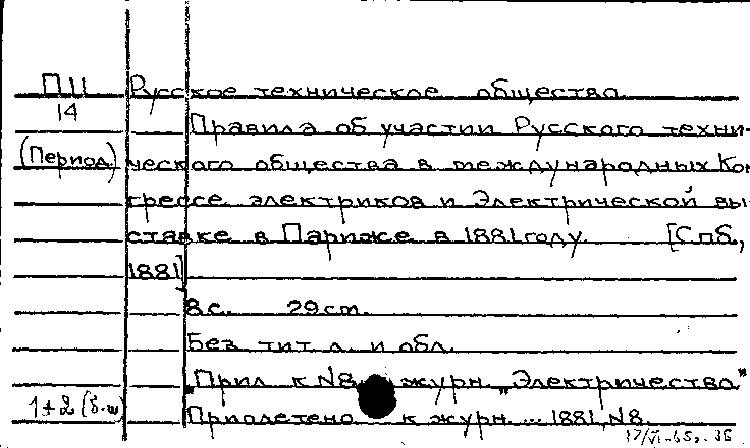 П11 Русское техническое общество
14
Правила об участии Русского техни-
(Период) ческого общества в международных Кон
грессе электриков и Электрической вы-
ставке в Париже в 1881 году. [Спб.,
1881]
8 с. 29 cm.
Без тит. л. и обл.
„Прил. к N8 журн. „Электричество"
1+2 (б-ш) Приплетено к журн. ... 1881, N8
17/VI-65г.